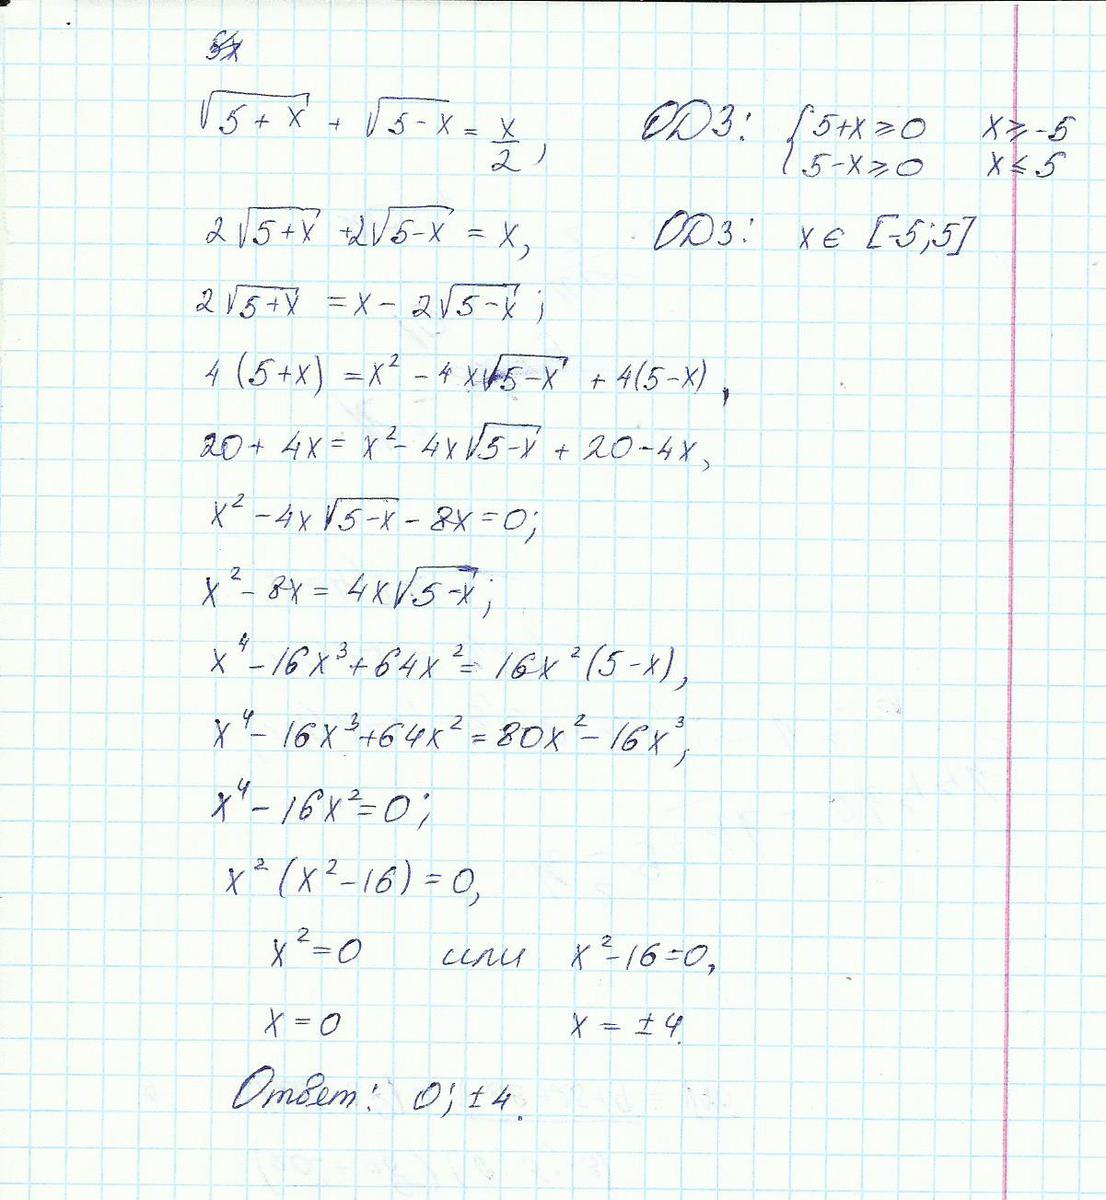 √5+x + √5-x = x/2, ОДЗ: { 5+x ≥ 0 x ≥ -5
5-x ≥ 0 x ≤ 5
2√5+x +2√5-x = x, ОДЗ: x ∈ [-5;5]
2√5+x = x - 2√5-x ;
4 (5+x) = x² - 4x√5-x + 4(5-x),
20 + 4x = x² - 4x√5-x + 20 - 4x,
x² - 4x√5-x - 8x = 0;
x² - 8x = 4x√5-x;
x⁴ - 16x³ + 64x² = 16x²(5-x),
x⁴ - 16x³ + 64x² = 80x² - 16x³;
x⁴ - 16x² = 0;
x² (x² - 16) = 0,
x² = 0 или x² - 16 = 0,
x = 0 x = ± 4.
Ответ: 0; ± 4.